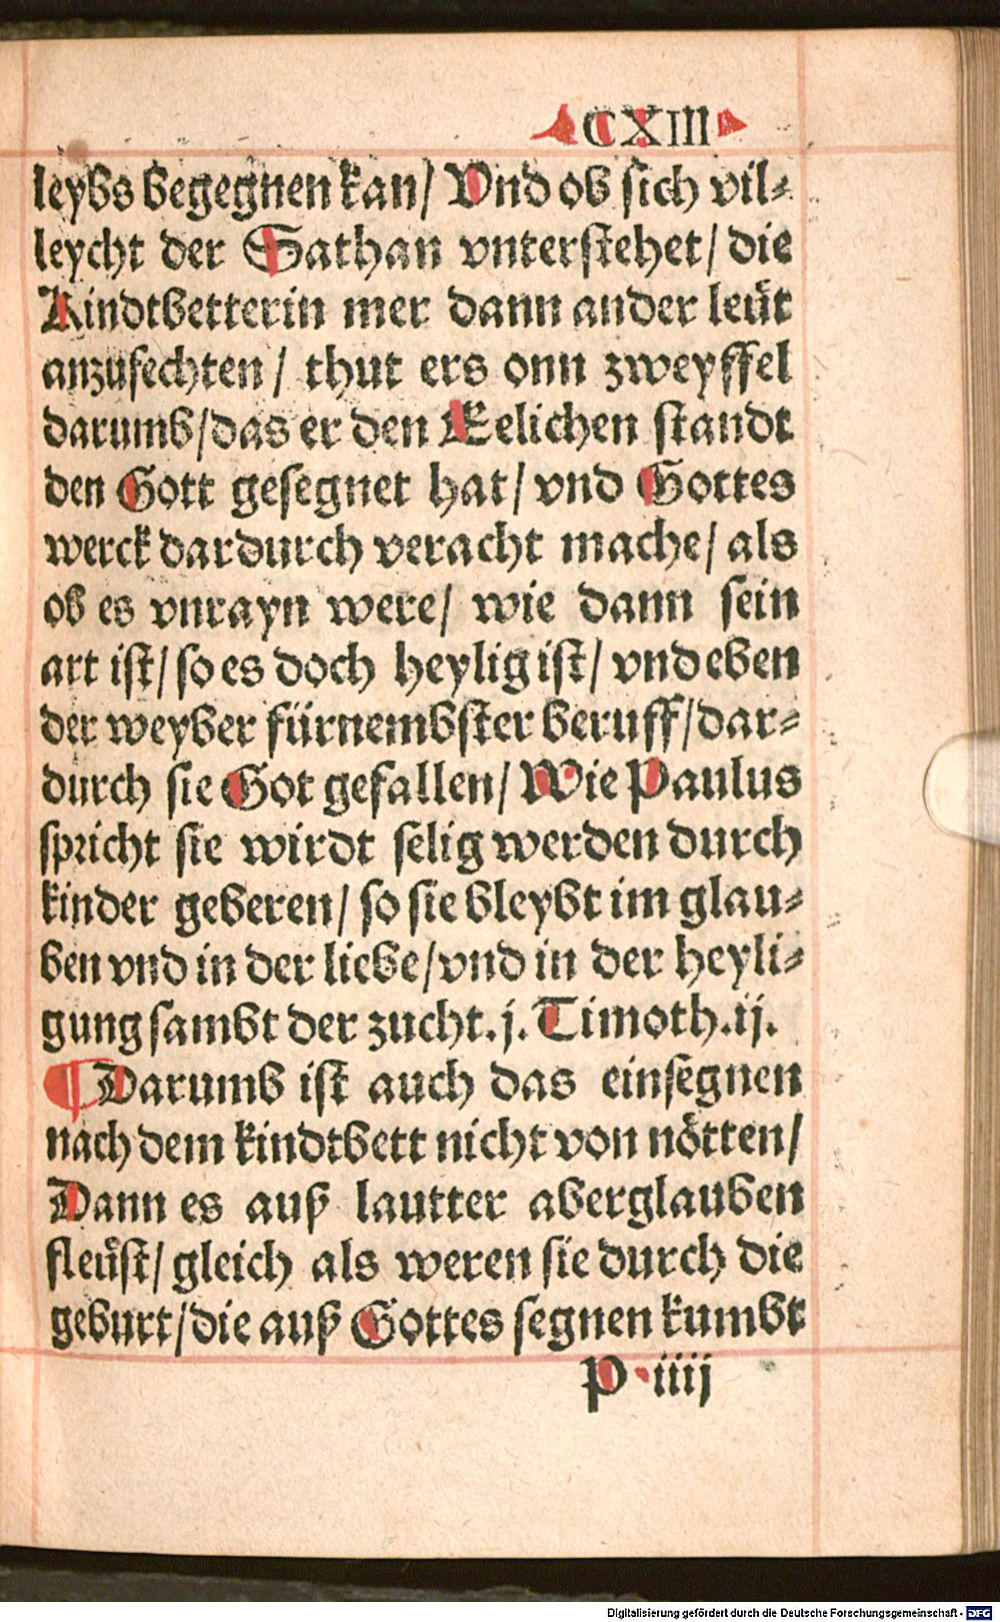 CXIII
leybs begegnen kan/ Vnd ob sich vil⸗
leycht der Sathan vnterstehet/ die
Kindtbetterin mer dann ander leüt
anzufechten/ thut ers onn zweyffel
darumb/das er den Eelichen standt
den Gott gesegnet hat/ vnd Gottes
werck dardurch veracht mache/ als
ob es vnrayn were/ wie dann sein
art ist/ so es doch heylig ist/ vnd eben
der weyber fürnembster beruff/dar⸗
durch sie Got gefallen/ Wie Paulus
spricht sie wirdt selig werden durch
kinder geberen/ so sie bleybt im glau⸗
ben vnd in der liebe/vnd in der heyli⸗
gung sambt der zucht.j. Timoth.ij.
¶ Darumb ist auch das einsegnen
nach dem kindtbett nicht von nötten/
Dann es auß lautter aberglauben
fleüst/ gleich als weren sie durch die
geburt/die auß Gottes segnen kumbt
P iiij
Digitalisierung gefördert durch die Deutsche Forschungsgemeinschaft - DFG